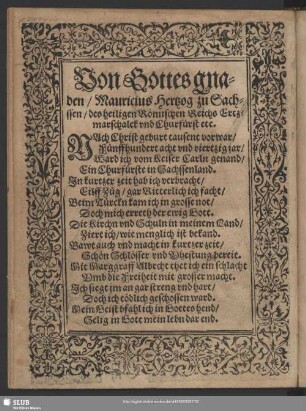 Von Gottes gna-
den / Mauricius Hertzog zu Sach-
ssen / des heiligen Römischen Reichs Ertz
marschalck vnd Churfürst etc.
NAch Christ geburt tausent vorwar /
Fünffhundert acht vnd viertzig jar /
Ward ich vom Keiser Carln genand /
Ein Churfürste in Sachssenland.
In kurtzer zeit hab ich verbracht /
Eilff Züg / gar Ritterlich ich facht /
Beim Türcken kam ich in grosse not /
Doch mich errett der ewig Gott.
Die Kirchn vnd Schuln in meinem Land /
Ziert ich / wie menglich ist bekand.
Bawt auch vnd macht in kurtzer zeit /
Schön Schlösser vnd Vhestung bereit.
Mit Marggraff Albrecht thet ich ein schlacht
Vmb die Freiheit mit grosser macht.
Ich siegt jm an gar streng vnd hart /
Doch ich tödlich geschossen ward.
Mein Geist bfahl ich in Gottes hend /
Selig in Gott mein lebn dar end.